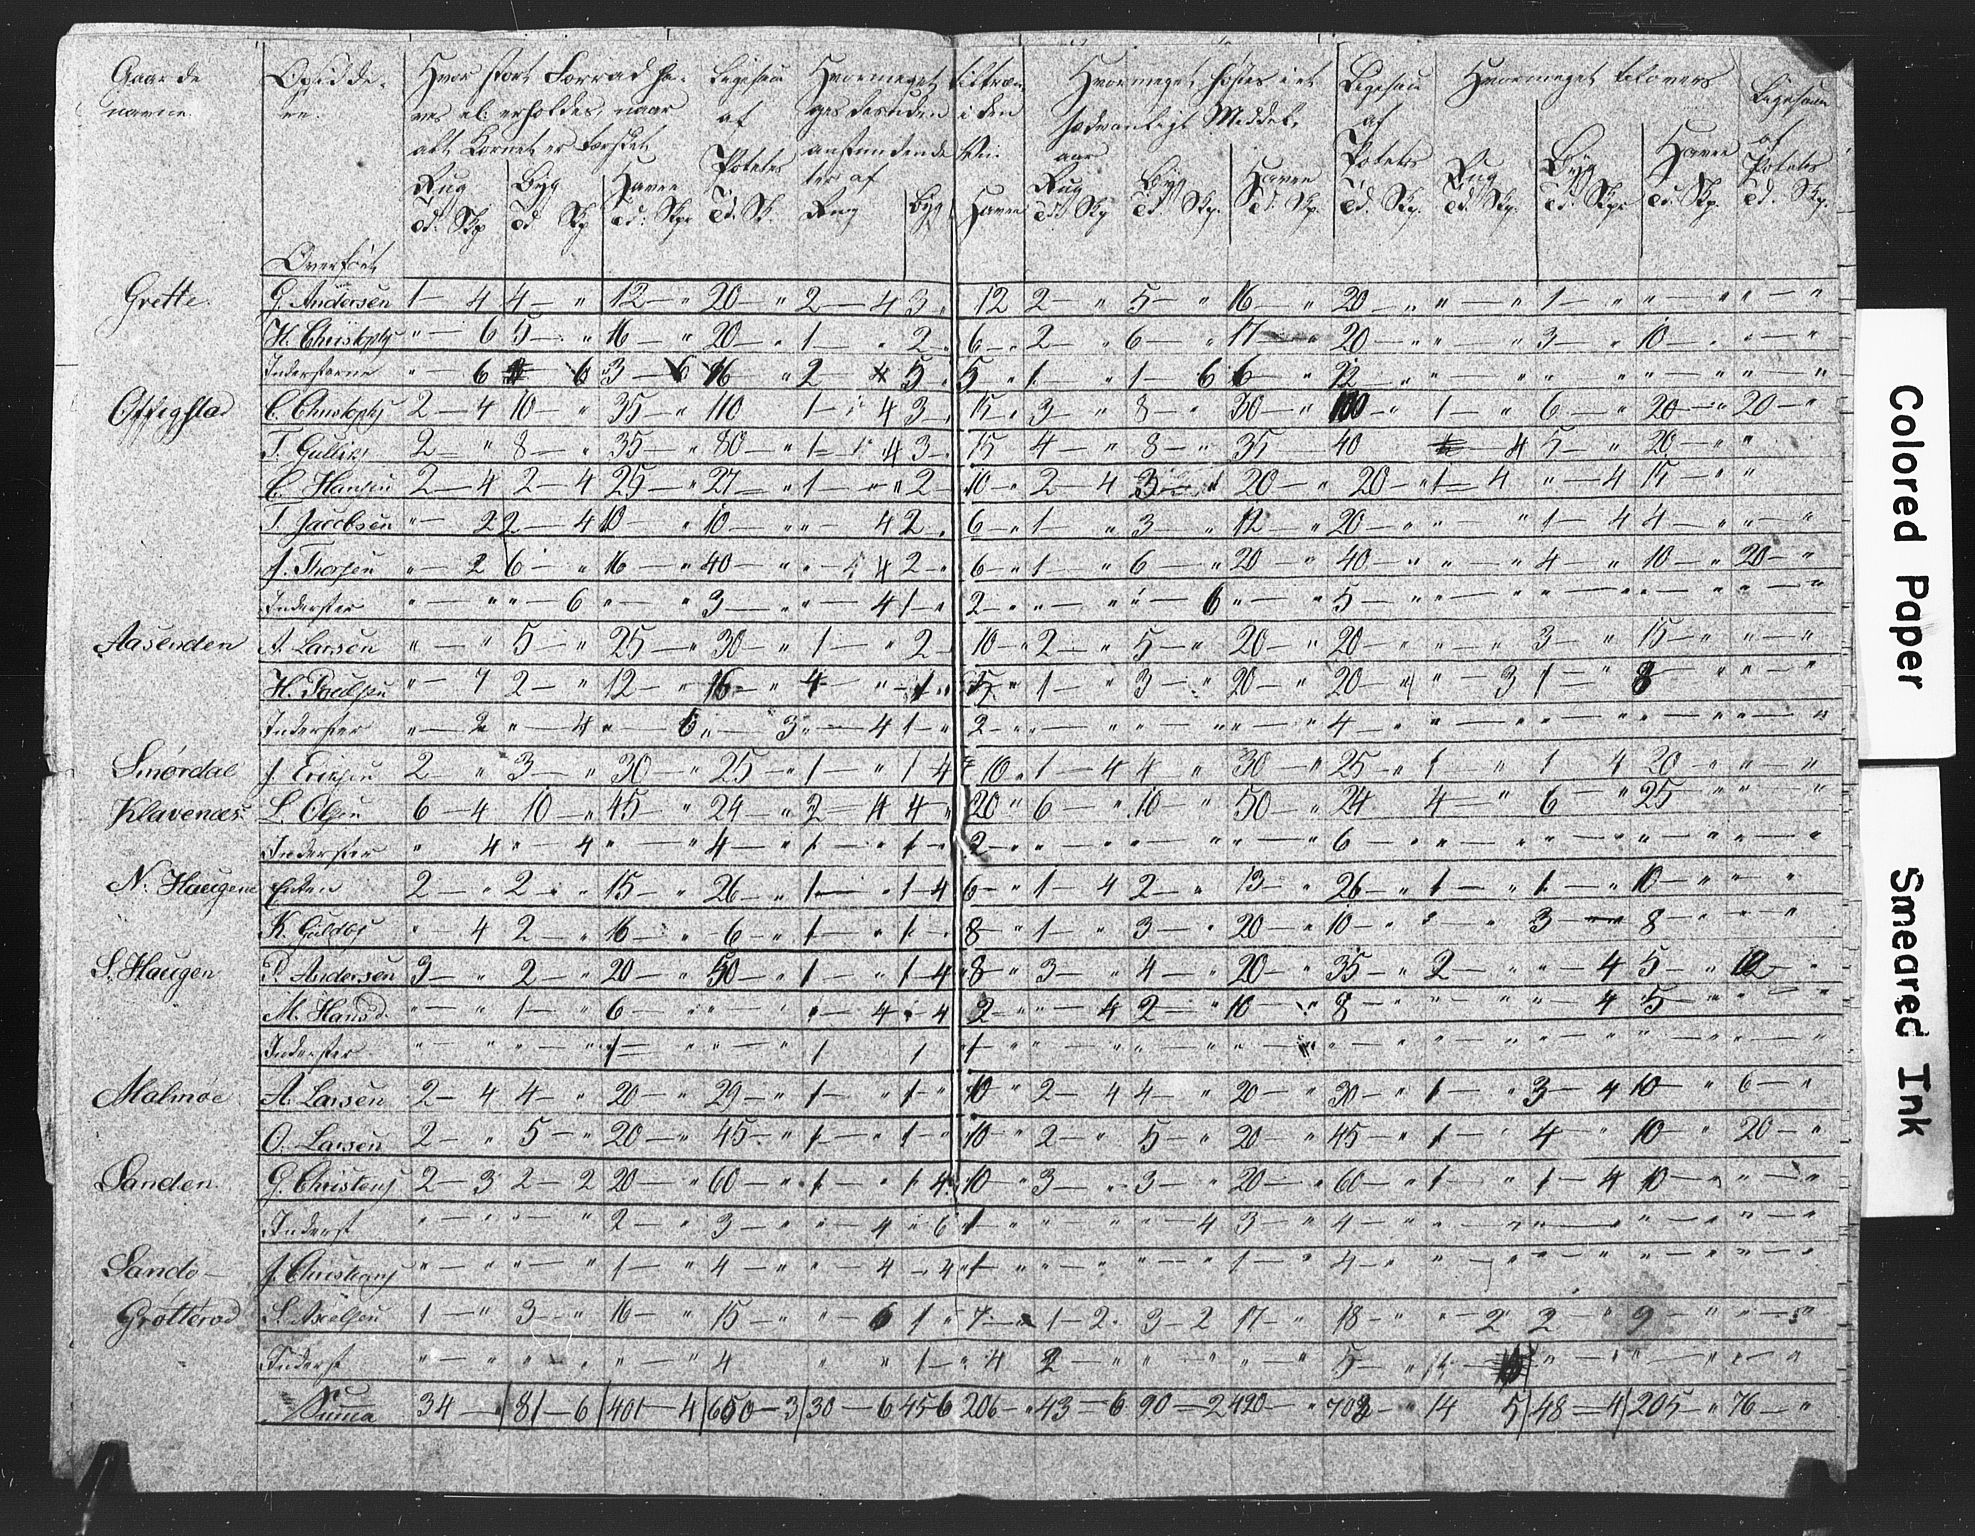 Gaarde Opsidde- Hvor stort Forraad ha- Ligesaa Hvormeget tiltræn Hvormeget høstes i et Ligesaa Hvormeget tilovers Ligesaa
navne re. ves el: erholdes, naar af ges desuden i den sædvanligt Middel- af af
alt Kornet er tærsket Potetes aar Potetes Potetes
Rug Byg Havre ter af Rug Byg Havre Rug Byg Havre
Td. Skp Td Skp Td. Skp Td. Sk. Rug Byg Havre Td Skp Td Skp. Td. Skp. Td. Skp. Td. Skp. Td. Skp. Td. Skp. Td. Skp.
Overført
Grette. G. Andersen 1 — 4 4 — " 12 — " 20 — " 2 — 4 3 " 12 2 — " 5 — " 16 — " 20 — " " — " 1 — " " — " " — "
H. Christophs " — 6 5 — " 16 — " 20 — " 1 — " 2 " 6 — " 2 — " 6 — " 17 — " 20 — " 3 — " 10 — " " — "
Indersterne " — 6 6 3 — 6 16 " 2 — 4 5 " 5 " 1 — " 1 — 6 6 — " 12 — " " — " " " " — " " — "
Offigstad C. Christophs 2 — 4 10 — " 35 — " 110 1 — 4 3 — 15 " 3 — " 8 — " 30 — " 100 — " 1 — " 6 — " 20 — " 20 — "
T. Gulliks 2 — " 8 — " 35 — " 80 — " 1 — 4 3 — 15 4 — " 8 — " 35 40 4 5 — " 20 — " "
C. Hansen 2 — 4 2 — 4 25 — " 27 — " 1 — " 2 — 10 — " 2 — 4 3 20 — " 20 — " 1 — 4 " — 4 15 — " "
T. Jacobsen " — 2 2 — 4 10 — " 10 — " " — 4 2 — " 6 — " 1 " 3 — " 12 — " 20 — " " 1 — 4 4 — " " — "
J. Thorsen " — 2 6 — " 16 — " 40 — " " — 4 2 — " 6 — " 1 — " 6 — " 20 — " 40 — " " — " 4 — " 10 — " 20 — "
Inderster " — " " — 6 " — " 3 — " " — 4 1 — " 2 — " " — " " — 6 " — " 5 — " " — " " — " " — " " — "
Aasenden A. Larsen " — " 5 — " 25 — " 30 — " 1 — " 2 — 10 — " 2 — " 5 — " 20 — " 20 — " " — " 3 — " 15 — " " — "
H. Poulsen " — 7 2 — " 12 — " 16 — " 4 — " " — 1 " " 1 — " 3 — " 20 — " 20 — " " — 3 1 — " 8 " — "
Inderster " — 2 " — 4 " — 6 " — 3 " — 4 1 — " 2 — " " — " " — " " — " 4 — " " — " " — " " — " " — "
Smørdal J. Eriksen 2 — " 3 — " 30 — " 25 — " 1 — " 1 — 4 10 " 1 — 4 4 — " 30 — " 25 — " 1 — " 1 4 20 — " " — "
Klavenæs. L. Olsen 6 — 4 10 — " 45 — " 24 — " 2 — 4 4 " 20 " 6 — " 10 — " 50 — " 24 4 — " 6 — " 25 " — "
Inderster " 4 " — 4 " — " 4 — " 1 — " 1 — " 2 — " " — " " — " " — " 6 — " " — " " — " " — " " — "
N. Haugene Enken 2 — " 2 — " 15 — " 26 — " 1 — 1 — 4 6 — " 1 — 4 2 — " 13 — " 26 — " 1 — " 1 — " 10 — " " — "
K. Guldbs " — 4 2 — " 16 — " 6 — " 1 — " 1 — " 8 — " 1 — " 3 — " 20 — " 10 — " " — " 3 — " 8 — " " — "
S. Haugen P. Andersen 3 — " 2 — " 20 — " 50 — " 1 — " 1 — 4 8 — " 3 — " 4 — " 20 — " 35 — " 2 — " " — 4 5 — " 12 — "
M. Hansd. " — " 1 — " 6 — " " — " " — 4 " — 4 2 — " " — 4 2 — " 10 — " 8 — " " — " " — 4 5 — " " — "
Inderster. " — " " — " 1 — " " — " 1 1 1 — " " — " " — " " — " " — " " — " " — " " — "
Malmøe. A. Larsen 2 — 4 4 — " 20 — " 29 — " 1 — " 1 — " 10 " 2 — 4 4 — " 20 — " 30 — " 1 — " 3 — 4 10 — " 6 — "
O. Larsen 2 — " 5 — " 20 — " 45 — " 1 — " 1 — " 10 — " 2 — " 5 — " 20 — " 45 — " 1 — " 4 — " 10 — " 20 — "
Sanden G. Christens 2 — 3 2 — 2 20 — " 60 — " 1 — " 1 4 10 — " 3 — " 3 — " 20 — " 60 — " 1 — " 1 — 4 10 — " " — "
Inderst " — " " — " 2 — " 3 — " " — 4 " 6 1 — " " — " " — 4 3 — " 4 — " " — " " — " " — " " — "
Sandø — J. Christians " — " " — " 1 — " 4 — " " — 4 — 4 1 — " " — " " — " 1 — " 4 — " " — " " — " " — " " — "
Grøtterød S. Axelsen 1 — " 3 — " 16 — " 15 — " " — 6 1 — 7 — " 1 — 2 3 — 2 17 — " 18 — " " — 2 2 — " 9 — " " — "
Inderst " — " " — " " — " 4 " " 1 — " 4 2 — " " — " " — " 5 — " " — " " — " " — "
Summa 34 — " 81 — 6 401 — 4 650 — 3 30 — 6 45 6 206 — " 43 — 6 90 — 2 420 — " 702 — " 14 5 48 — 4 205 — " 76 — "
Colored Paper
Smeared Ink